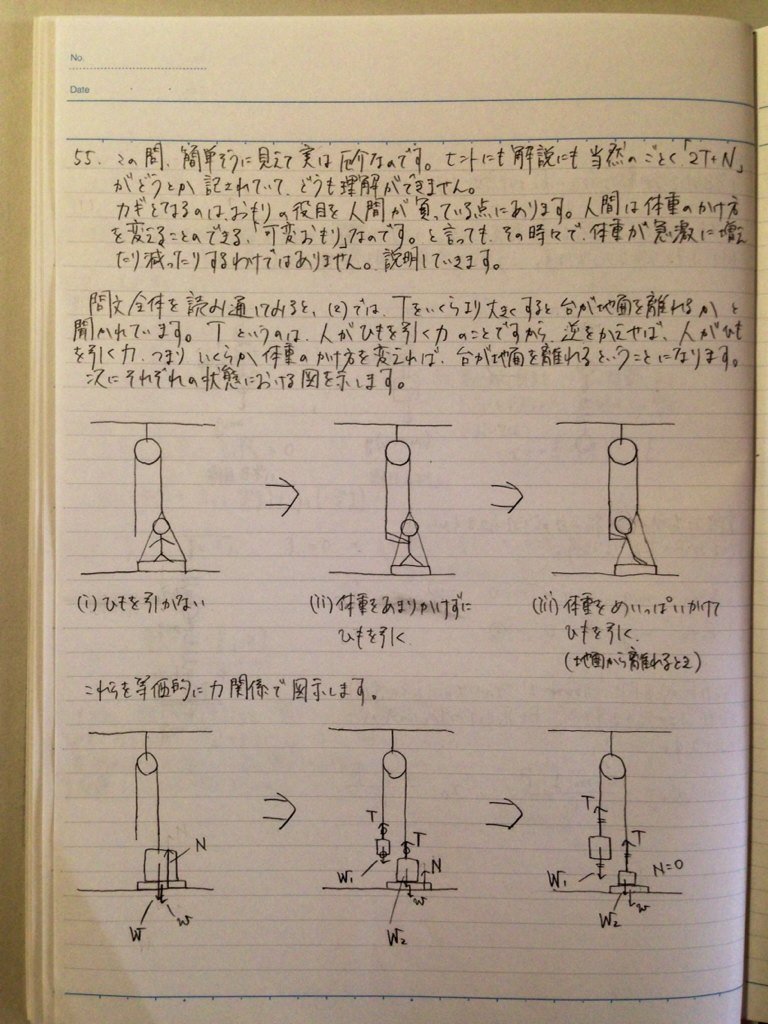 No.
Date
55. この問、簡単そうに見えて実は厄介なのです。ヒントにも解説にも当然のごとく「2T+N」
がどうとか記されていて、どうも理解ができません。
カギとなるのは、おもりの役目を人間が負っている点にあります。人間は体重のかけ方
を変えることのできる、「可変おもり」なのです。と言っても、その時々で、体重が急激に増え
たり減ったりするわけではありません。説明していきます。
問文全体を読み通してみると、(2)では、Tをいくらより大きくすると台が地面を離れるかと
聞かれています。Tというのは、人がひもを引く力のことですから、逆をかえせば、人がひも
を引く力、つまりいくらか体重のかけ方を変えれば、台が地面を離れるということになります。
次にそれぞれの状態における図を示します。
(i) ひもを引かない
(ii) 体重をあまりかけずに
ひもを引く
(iii) 体重をめいっぱいかけて
ひもを引く
(地面から離れるとき)
これらを等価的に力関係で図示します。
N
W
w
T
T
W₁
N
w
W₂
T
T
N=0
W₁
w
W₂